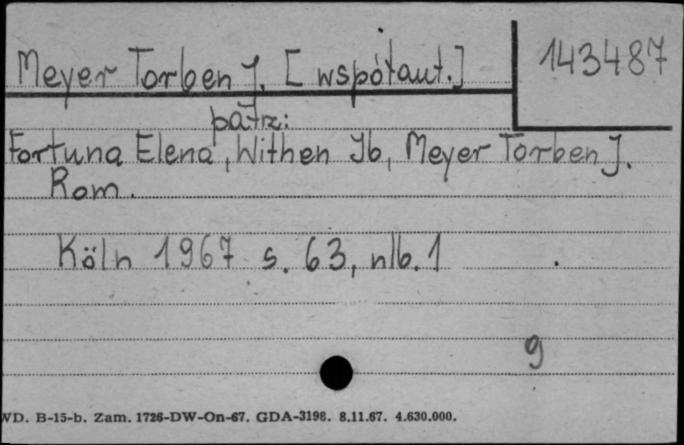 143487
Meyer Torben J. [współaut.]
patrz:
Fortuna Elena, Withen Ib, Meyer Torben J.
Rom.
Köln 1967 s. 63, nlb. 1
9
WD. B-15-b. Zam. 1726-DW-On-67. GDA-3198. 8.11.67. 4.630.000.